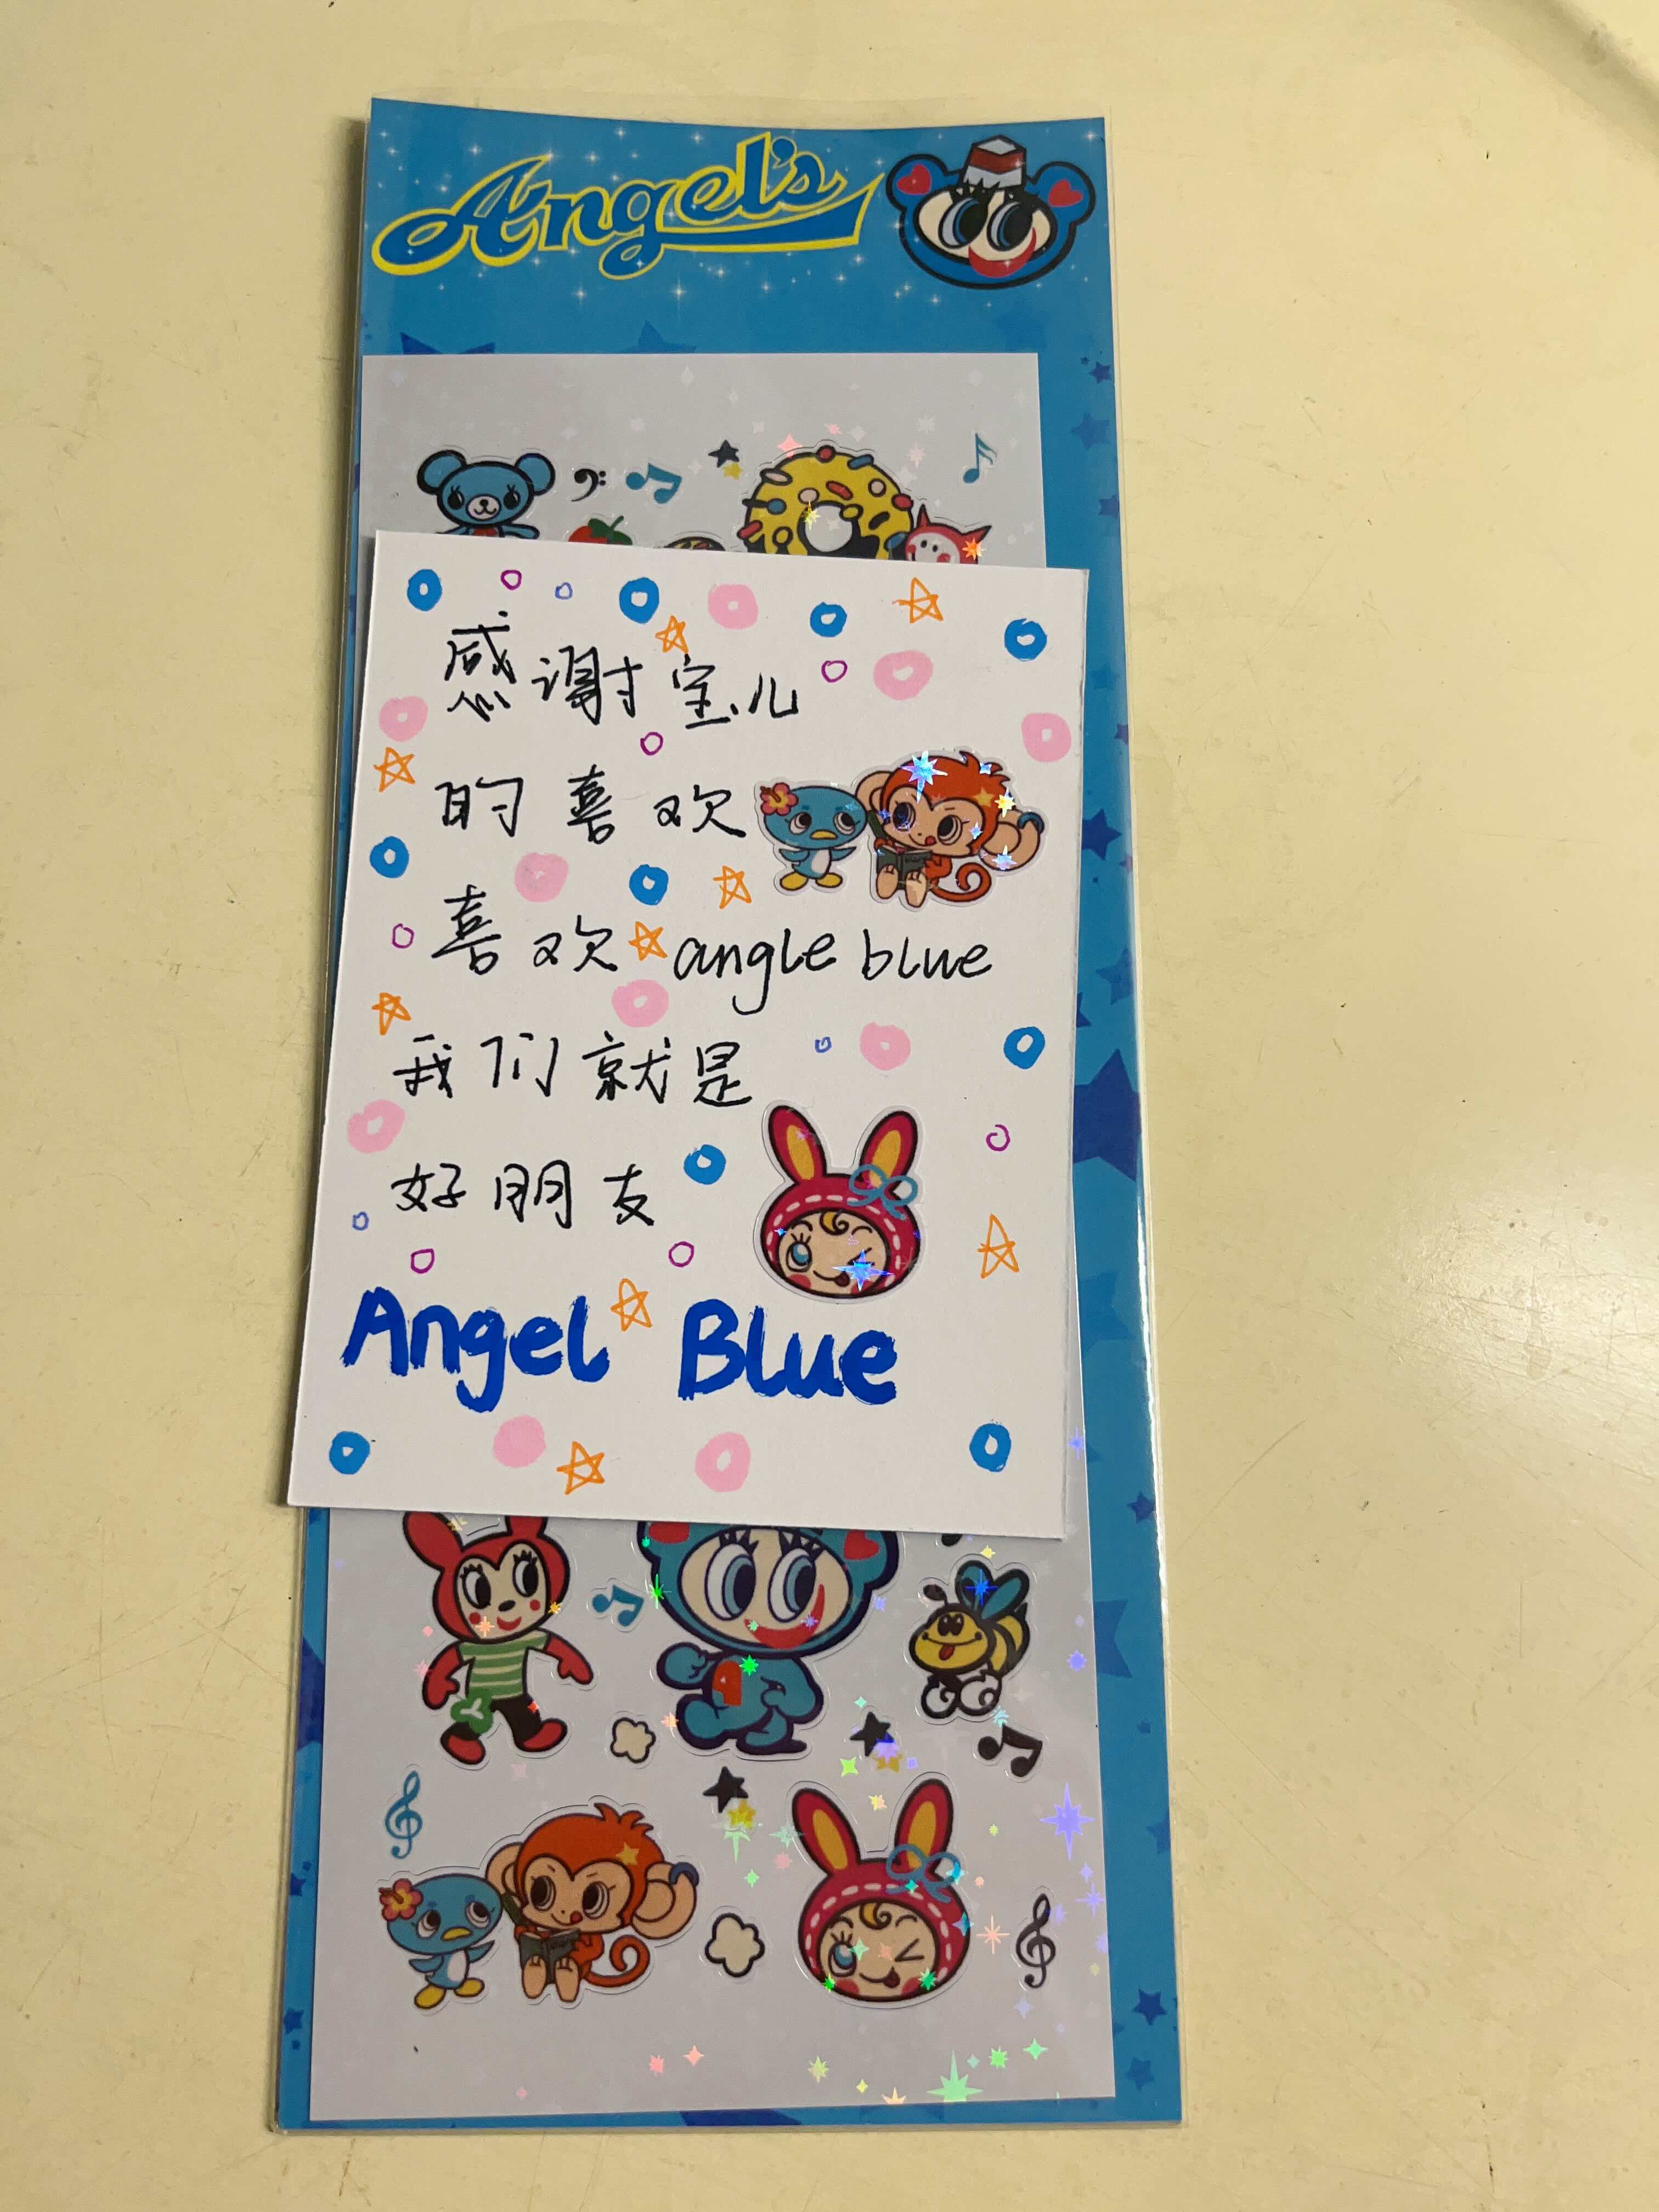 Angel's
感谢宝儿
的喜欢
喜欢 angle blue
我们就是
好朋友
Angel Blue